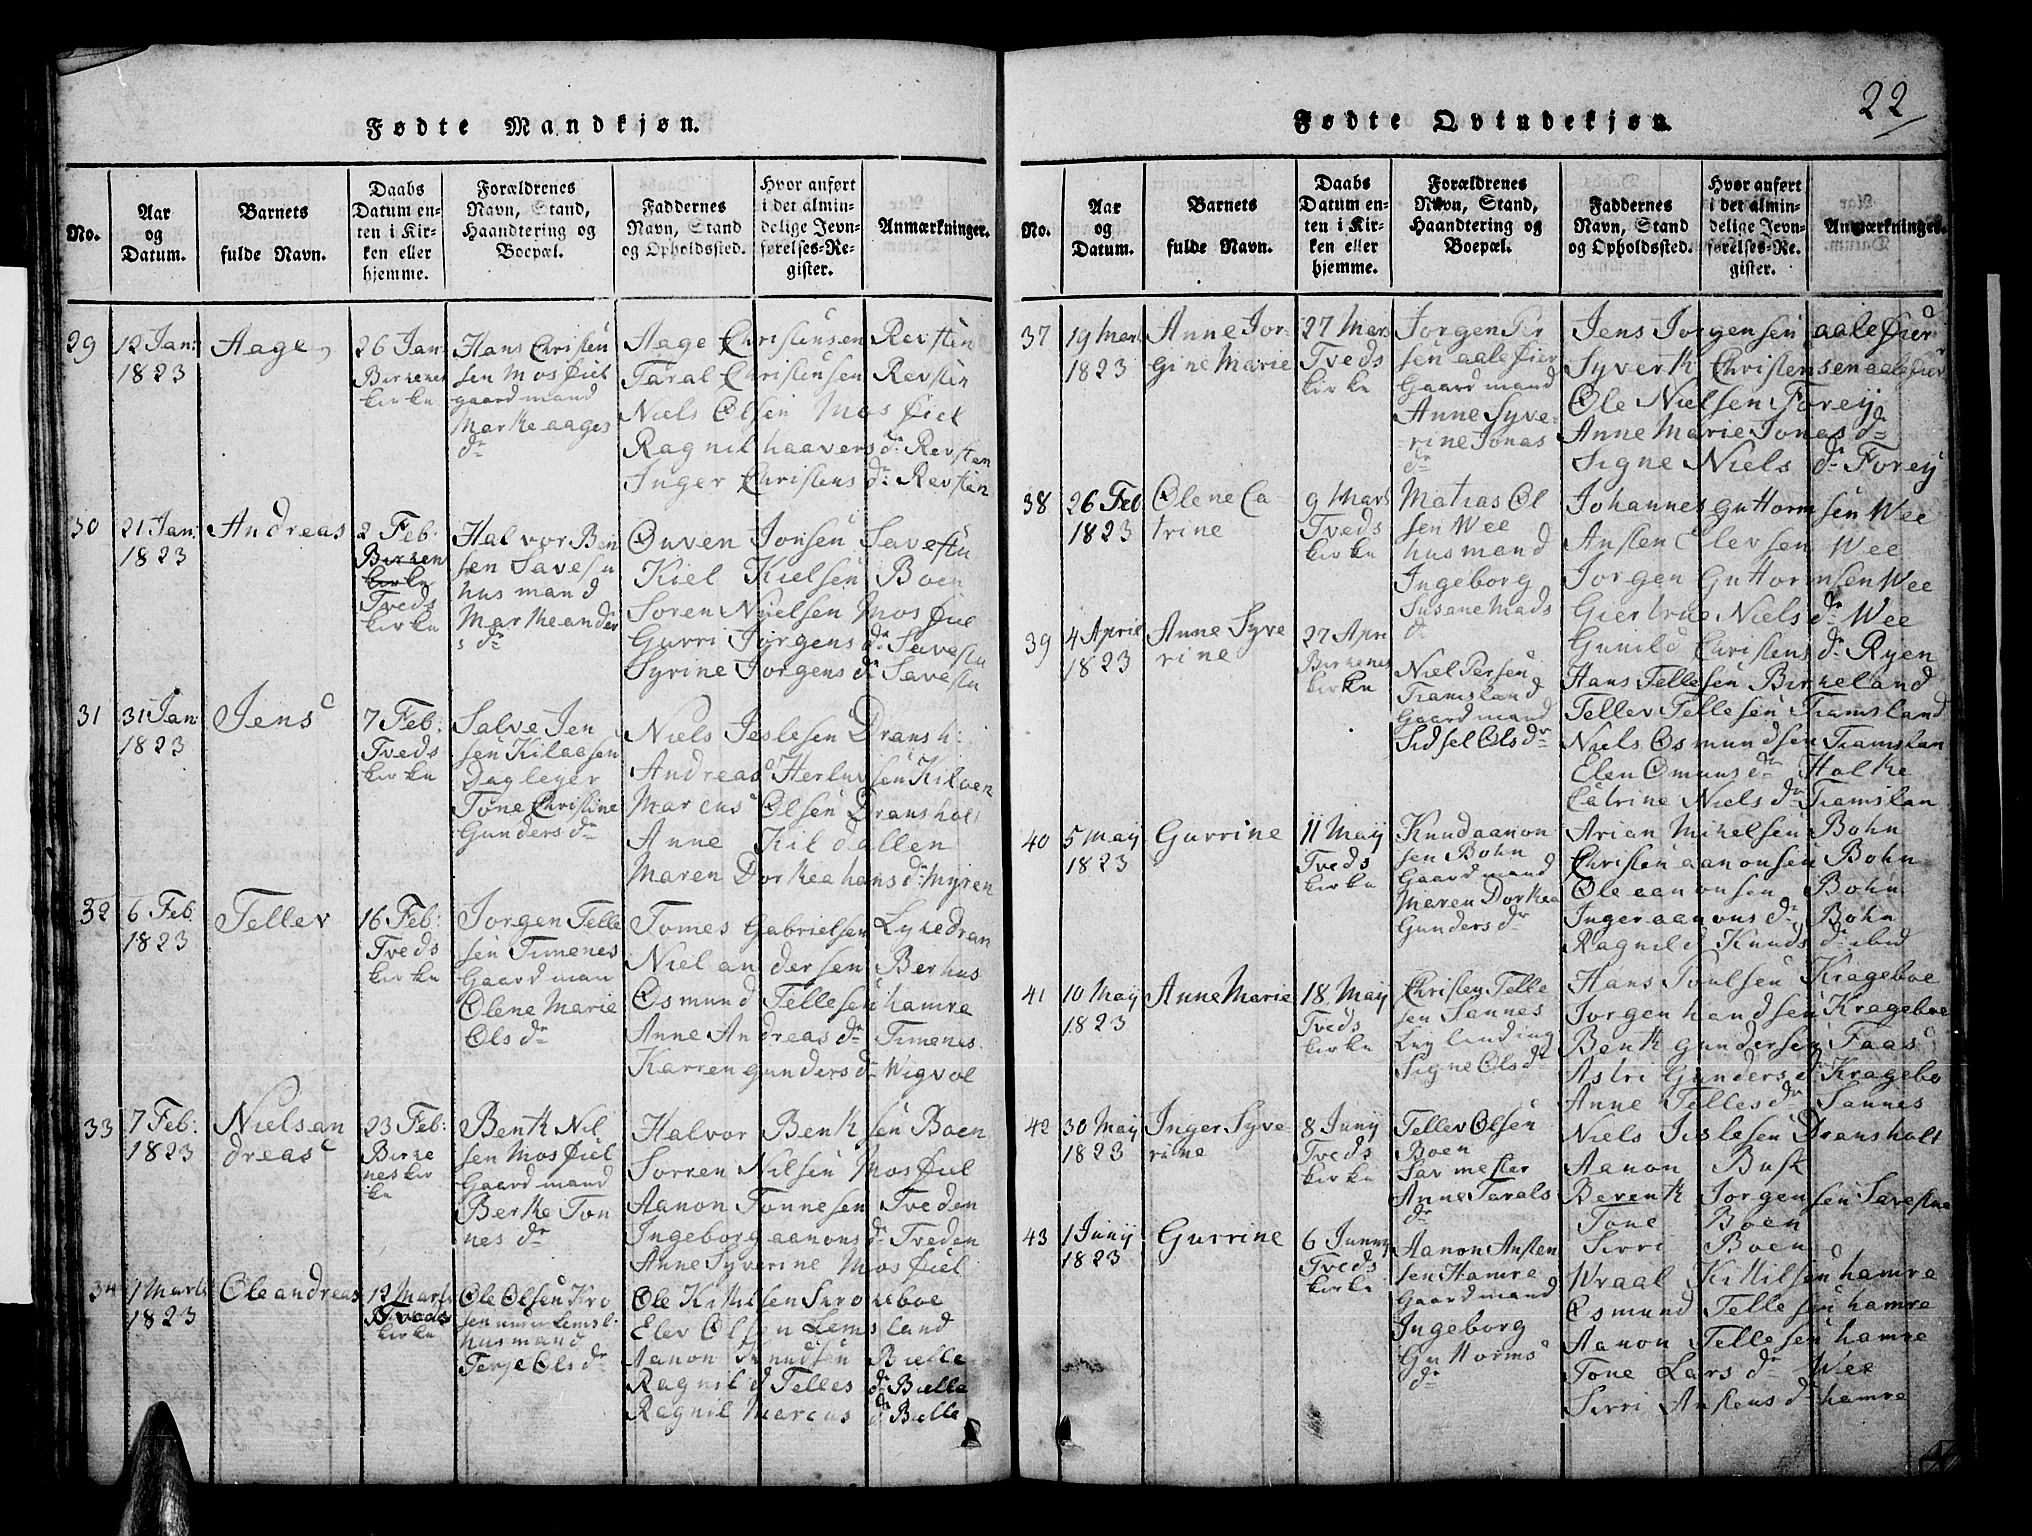 22
Fødte Mandkjøn.
No.
Aar
og
Datum.
Barnets
fulde Navn.
Daabs
Datum en-
ten i Kir-
ken eller
hjemme.
Forældrenes
Navn, Stand,
Haandtering og
Boepæl.
Faddernes
Navn, Stand
og Opholdssted.
Hvor anført
i det almin-
delige Jevn-
førelses-Re-
gister.
Anmærkninger.
29
12 Jan:
1823
Aage
26 Jan
Birkenes
kirke
Hans Christen
sen Mosfiel
gaardmand
Marke aages
dr
Aage Christensen Revsten
Taral Christensen Revsten
Niels Olsen Mosfiel
Ragnil haavers dr Revsten
Inger Christens dr Revsten
30
21 Jan:
1823
Andreas
2 Feb:
Birken
kirke
Tveds
kirke
Halvor Ben
sen Savestu
husmand
Marke ander
s dr
Ouven Jonsen Savestu
Kiel Kielsen Boen
Soren Nielsen Mosfiel
Gurri Jorgens dr Savestu
Syrine Jorgens dr Savestu
31
31 Jan
1823
Jens
7 Feb:
Tveds
kirke
Salve Jen
sen Kilaasen
Dagleyer
Tone Christine
Gunders dr
Niels Jeslesen Dransh:
Andreas Herluvsen Kiloen
Marcus Olsen Dransholt
Anne Kildallen
Maren Dorkea hans dr Myren
32
6 Feb:
1823
Tellev
16 Feb:
Tveds
kirke
Jorgen Telle
sen Timenes
Gaardman
Olene Marie
Ols dr
Tomes Gabrielsen Lyredran
Niel andersen Berhus
Osmund Tellesen hamre
Anne Andreas dr Timenes
Karren gunders dr Wigvol
33
7 Feb:
1823
Niels an
dreas
23 Feb:
Birke
neskir
ke
Benk Nil
sen Mosfiel
Gaardmand
Berke Ton
nes dr
Halvor Benksen Boen
Sorren Nilsen Mosfiel
Aanon Tonnesen Tveden
Ingeborg aanons dr Tveden
Anne Syverine Mosfiel
34
1 Marts
1823
Ole andreas
12 Marts
Tveds
kirke
Ole Olsen Kro
sen under Lemsl:
husmand
Terje Ols dr
Ole Kittilsen Krokeboe
Elev Olsen Lemsland
Aanon Knudsen Bielle
Ragnild Telles dr Bielle
Ragnil Marcus dr Bielle
Fødte Qvindekjøn.
No.
Aar
og
Datum.
Barnets
fulde Navn.
Daabs
Datum en-
ten i Kir-
ken eller
hjemme.
Forældrenes
Navn, Stand,
Haandtering og
Boepæl.
Faddernes
Navn, Stand
og Opholdssted.
Hvor anført
i det almin-
delige Jevn-
førelses-Re-
gister.
Anmærkninger.
37
19 Mars
1823
Anne Jor-
gine Marie
27 Mars
Tveds
kirke
Jorgen Per
sen aalefier
Gaardmand
Anne Syve-
rine Jonas
dr
Jens Jorgensen aalefier
Syverk Christensen aalefier
Ole Nielsen Forey
Anne Marie Jonas dr
Signe Niels dr Forey
38
26 Feb
1823
Olene Ca-
trine
9 Marts
Tveds
kirke
Matias Ol
sen Wee
husmand
Ingeborg
Susane Mads
dr
Johannes Guttormsen Wee
Ansten Elevsen Wee
Jorgen Guttormsen Wee
Giertrue Niels dr Wee
Gunild Christens dr Ryen
39
4 April
1823
Anne Syve
rine
27 Apri
Birkenes
kirke
Niel Persen
Tramsland
Gaardmand
Sidsel Ols dr
Hans Tellesen Birkeland
Tellev Tellesen Tramsland
Niels Osmundsen Tramslan
Elen Omuns dr Holke
Catrine Niels dr Tramslan
40
5 Maÿ
1823
Gurrine
11 Maÿ
Tveds
kirke
Knud aanon
sen Bohn
Gaardmand
Maren Dorkea
Gunders dr
Arian Mikelsen Bohn
Christen aanonsen Bohn
Ole aanonsen Bohn
Inger aanons dr Bohn
Ragnild Knuds dr ibid
41
10 Maÿ
1823
Anne Marie
18 Maÿ
Tveds
kirke
Christen Telle
sen Sannes
Leylending
Signe Ols dr
Hans Poulsen Krageboe
Jorgen handsen Krageboe
Benk gundersen Faas
Astri Gunders dr Kragebo
Anne Telles dr Sannes
42
30 Maÿ
1823
Inger Syve
rine
8 Junÿ
Tveds
kirke
Tellev Olsen
Boen
Savmester
Anne Tarals
dr
Niels Jislesen Dransholt
Aanon Busk
Berenk Jorgensen Savestue
Tone Boen
Sirri Boen
43
1 Junÿ
1823
Gurrine
6 Junny
Tveds
kirke
Aanon Ansten
sen Hamre
Gaardmand
Ingeborg
Guttorms
dr
Wraal Kittilsen hamre
Osmund Tellesen hamre
Aanon Tellesen hamre
Tone Lars dr Wee
Sirri Anstens dr hamre